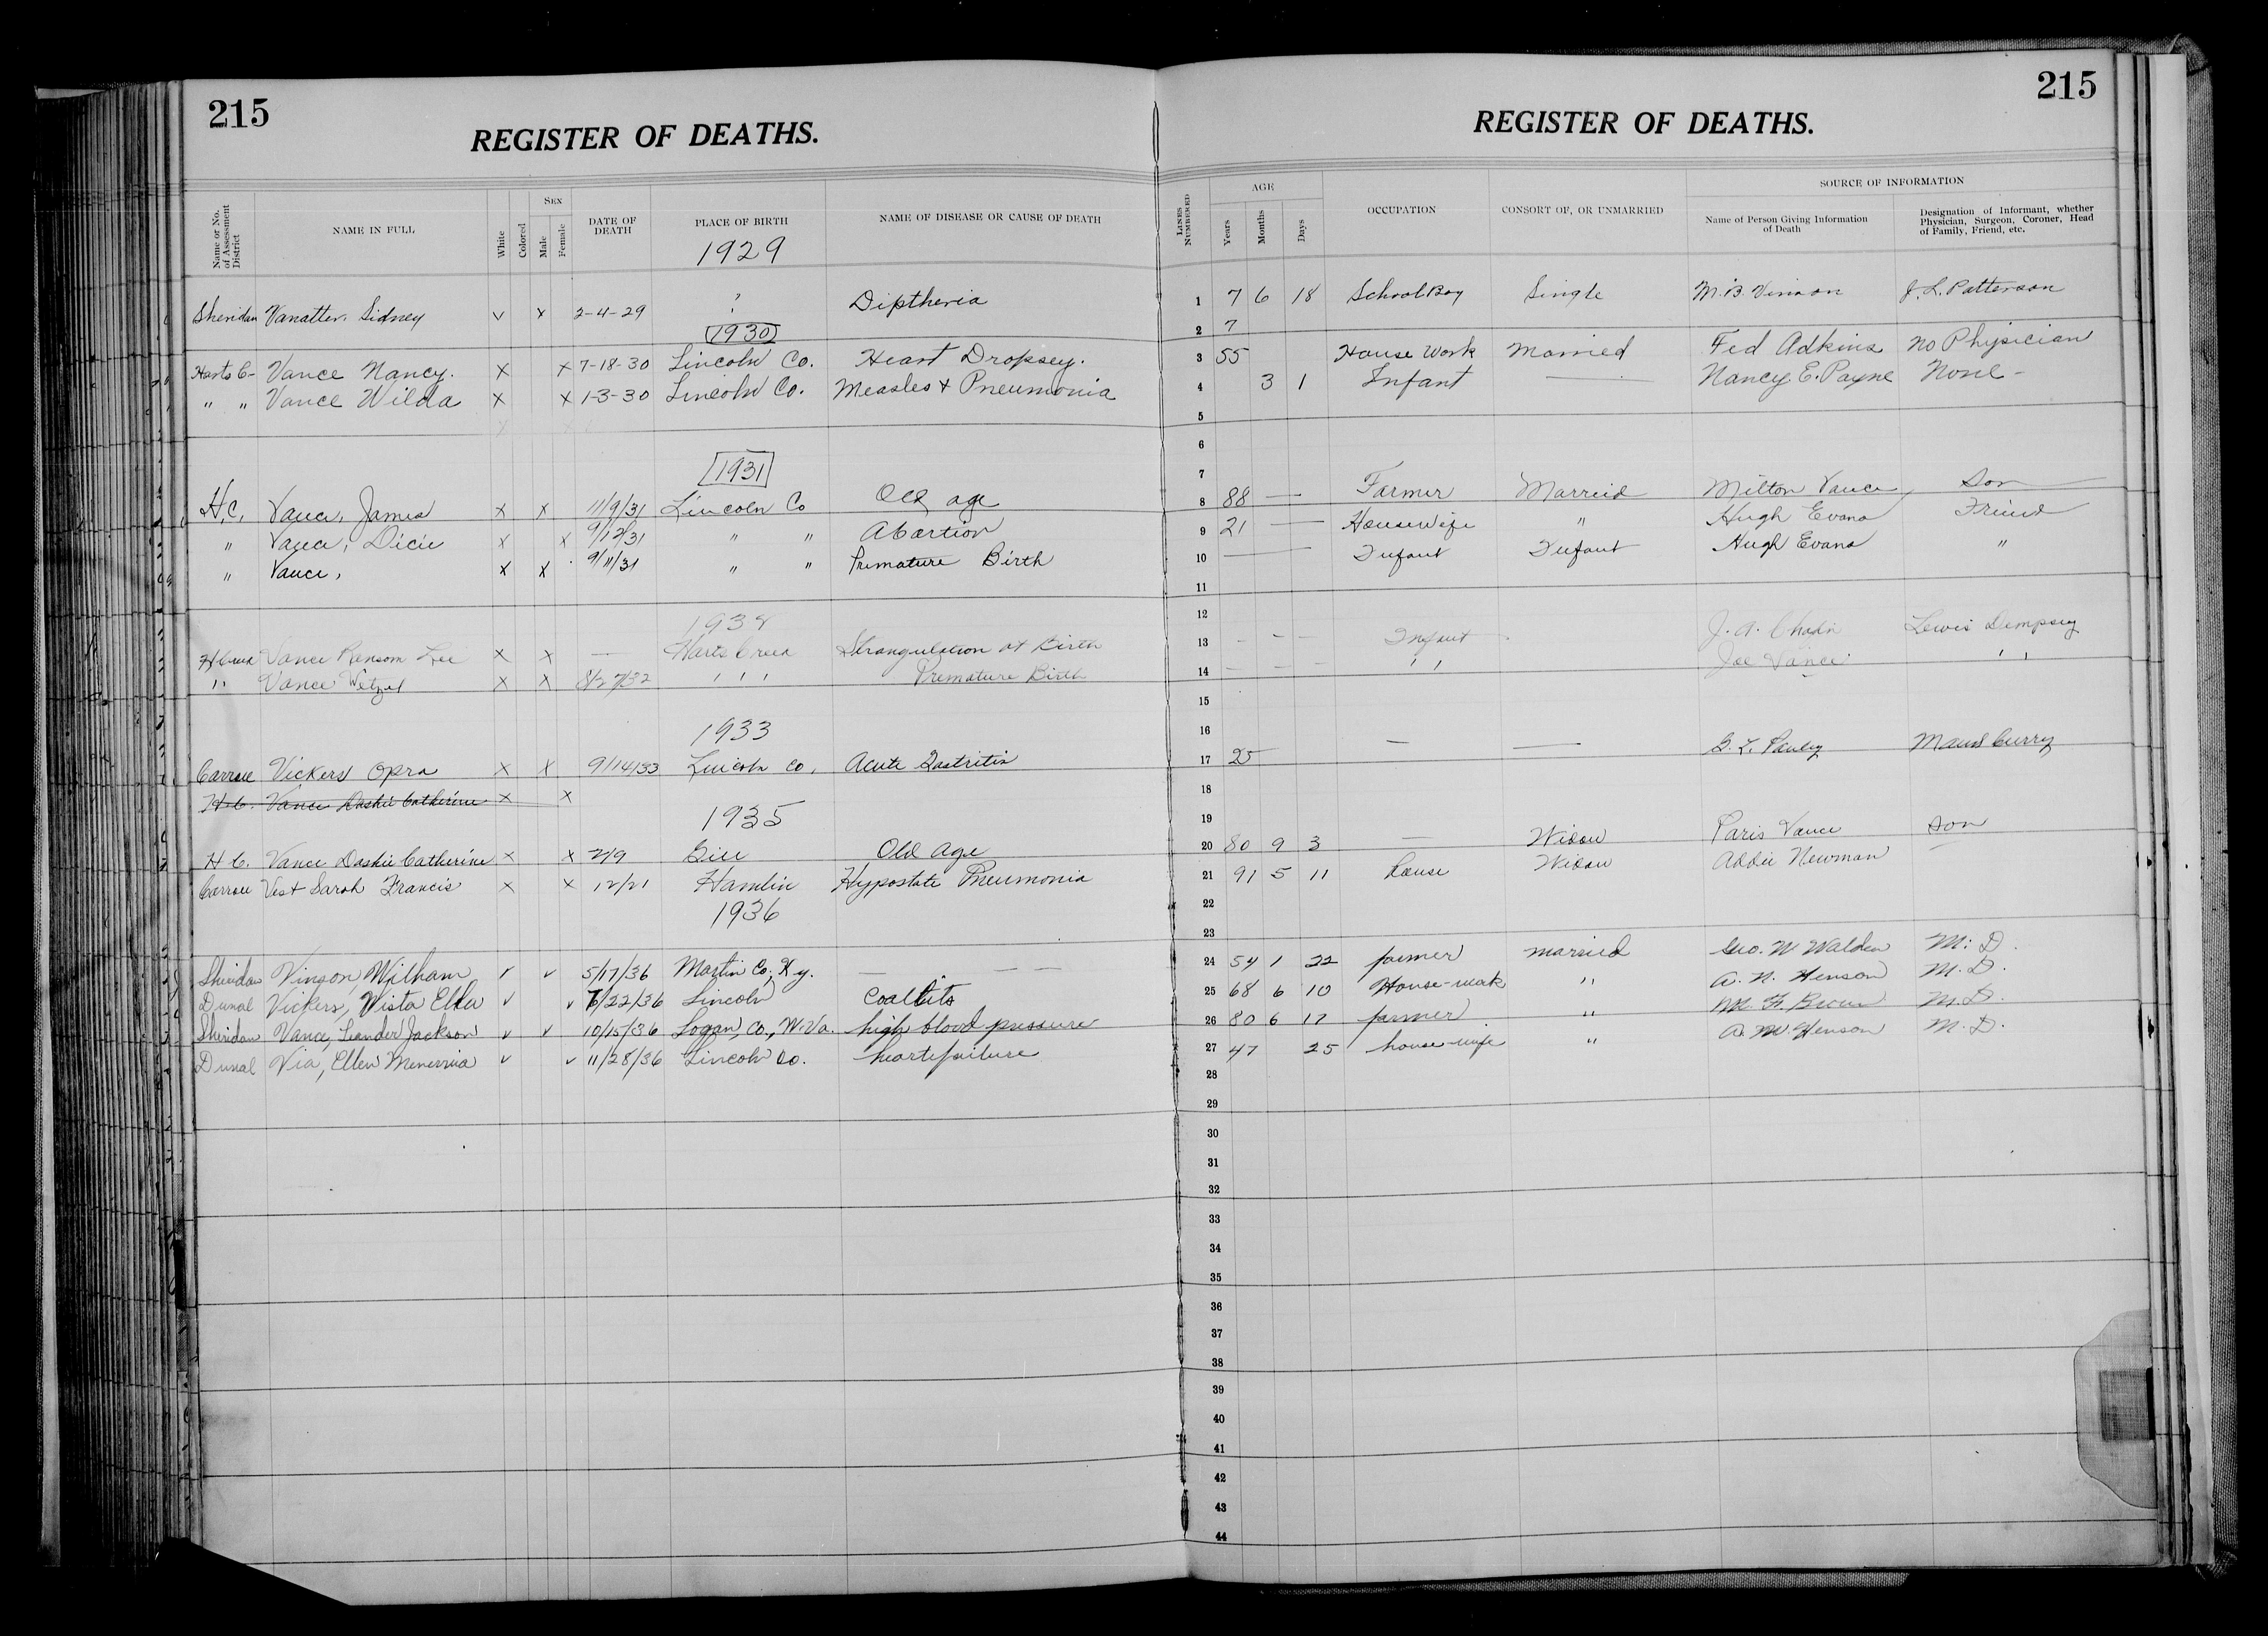 215
REGISTER OF DEATHS.
Name or No. of Assessment District
NAME IN FULL
White
Colored
SEX
Male
Female
DATE OF DEATH
PLACE OF BIRTH
NAME OF DISEASE OR CAUSE OF DEATH
1929
Sheridan Vanatter, Sidney v x 2-4-29 ? Diptheria
1930
Harts C- Vance Nancy. x x 7-18-30 Lincoln Co. Heart Dropsey.
" " Vance Wilda x x 1-3-30 Lincoln Co. Measles & Pneumonia
1931
H.C. Vance, James x x 11/9/31 Lincoln Co Old age
" Vance, Dicie x x 9/12/31 " " Abortion
" Vance, x x 9/11/31 " " Premature Birth
Vance Ransom Lee x x — Harts Creek Strangulation at Birth
" Vance Wetzel x x 8/27/32 " " " Premature Birth
1933
Carroll Vickers Opra x x 9/14/33 Lincoln Co. Acute Gastritis
H.C. Vance Dashie Catherine x x
1935
H C. Vance Dashie Catherine x x 2/9 Old Age
Carroll Vest Sarah Francis x x 12/21 Hamlin Hypostate Pneumonia
1936
Sheridan Vinson, William v v 5/17/36 Martin Co, Ky. — — —
Duval Vickers, Wista Ellen v v /22/36 Lincoln
Sheridan Vance, Leander Jackson v v 10/15/36 Logan, Co., W.Va. high blood pressure
Duval Via, Ellen v v 11/28/36 Lincoln Co. heartfailure
215
REGISTER OF DEATHS.
LINES NUMBERED
AGE
Years
Months
Days
OCCUPATION
CONSORT OF, OR UNMARRIED
SOURCE OF INFORMATION
Name of Person Giving Information of Death
Designation of Informant, whether Physician, Surgeon, Coroner, Head of Family, Friend, etc.
1 7 6 18 School Boy Single M.B. Vinson J. L. Patterson
2 7
3 55 House Work Married Fed Adkins No Physician
4 3 1 Infant — Nancy E. Payne None -
5
6
7
8 88 — Farmer Married Milton Vance, Son
9 21 — Housewife " Hugh Evans Friend
10 — Infant Infant Hugh Evans "
11
12
13 - - - Infant J. A. Lewis Dempsey
14 - - - " Joe Vance "
15
16
17 25 — — Maud Curry
18
19
20 80 9 3 — Widow Paris Vance Son
21 91 5 11 House Widow Addie Newman
22
23
24 54 1 22 farmer married Geo. W Walden M. D.
25 68 6 10 House-work " A. N. Henson M. D.
26 80 6 17 farmer " M. D.
27 47 25 house-wife " A. M. Henson M. D.
28
29
30
31
32
33
34
35
36
37
38
39
40
41
42
43
44